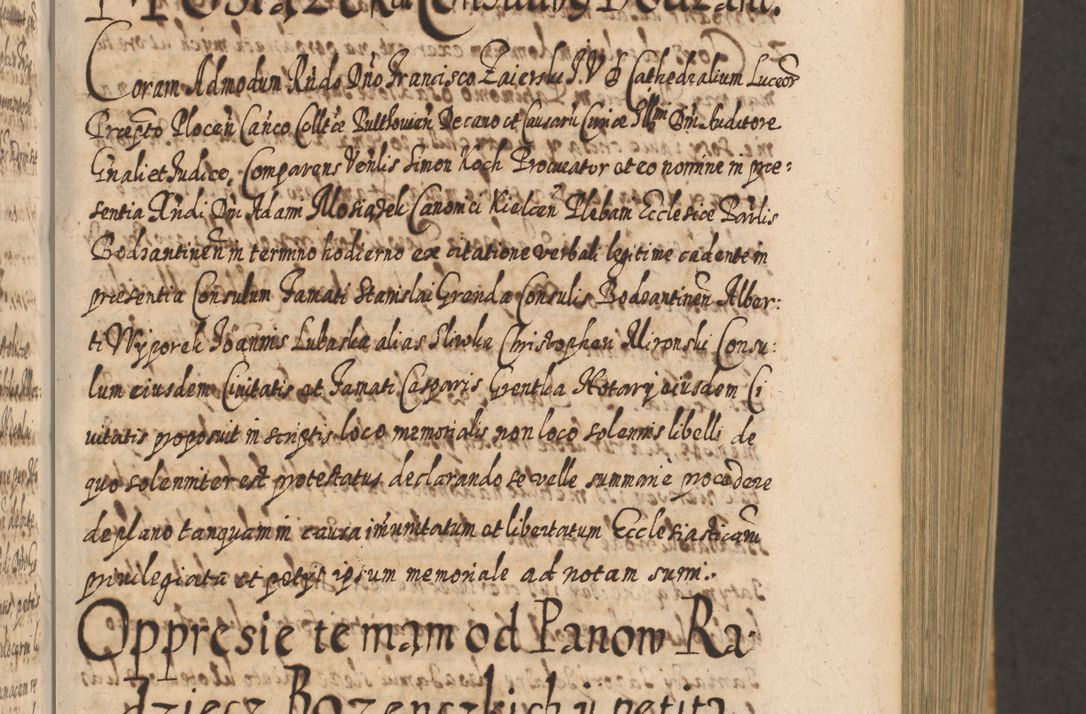 Mosiązek Consuling Bodzant.
Coram Admodum Rndo Dño Francisco Zaierski J. V. D. Cathedralium Luceor
Præpto Plocen Canco Colltæ Pulthovien Decano et Causarũ Curiæ Illmi Dñi Auditore
Gñali et Judice, Comparens Venlis Simon Koch Procurator et eo nomine in præ:
sentia Rndi Dñi Adami Mosiązek Canonici Kielcen Plebani Ecclesiæ Parlis
Bodzantinen in termino hodierno ex citatione verbali legitime cadenti in
præsentia Consulum Famati Stanislai Grenda Consulis Bodzantinen Alber:
ti Wyporek Joannis Lubaska alias Sliwka Christophen Mironski Consu:
lum eiusdem Ciuitatis et Famati Casparis Grentka Notarij eiusdem Ci
uitatis proposuit in scriptis loco memorialis non loco solennis libelli de
quo solenniter est protestatus declarando se velle summarie procedere
de plano tanquam in causa im̃unitatum et libertatum Ecclesiasticarũ
priuilegiata et petijt ipsum memoriale ad notam sumi.
Oppresie te mam od Panow Ra
dziecz Bozenczkich y petita